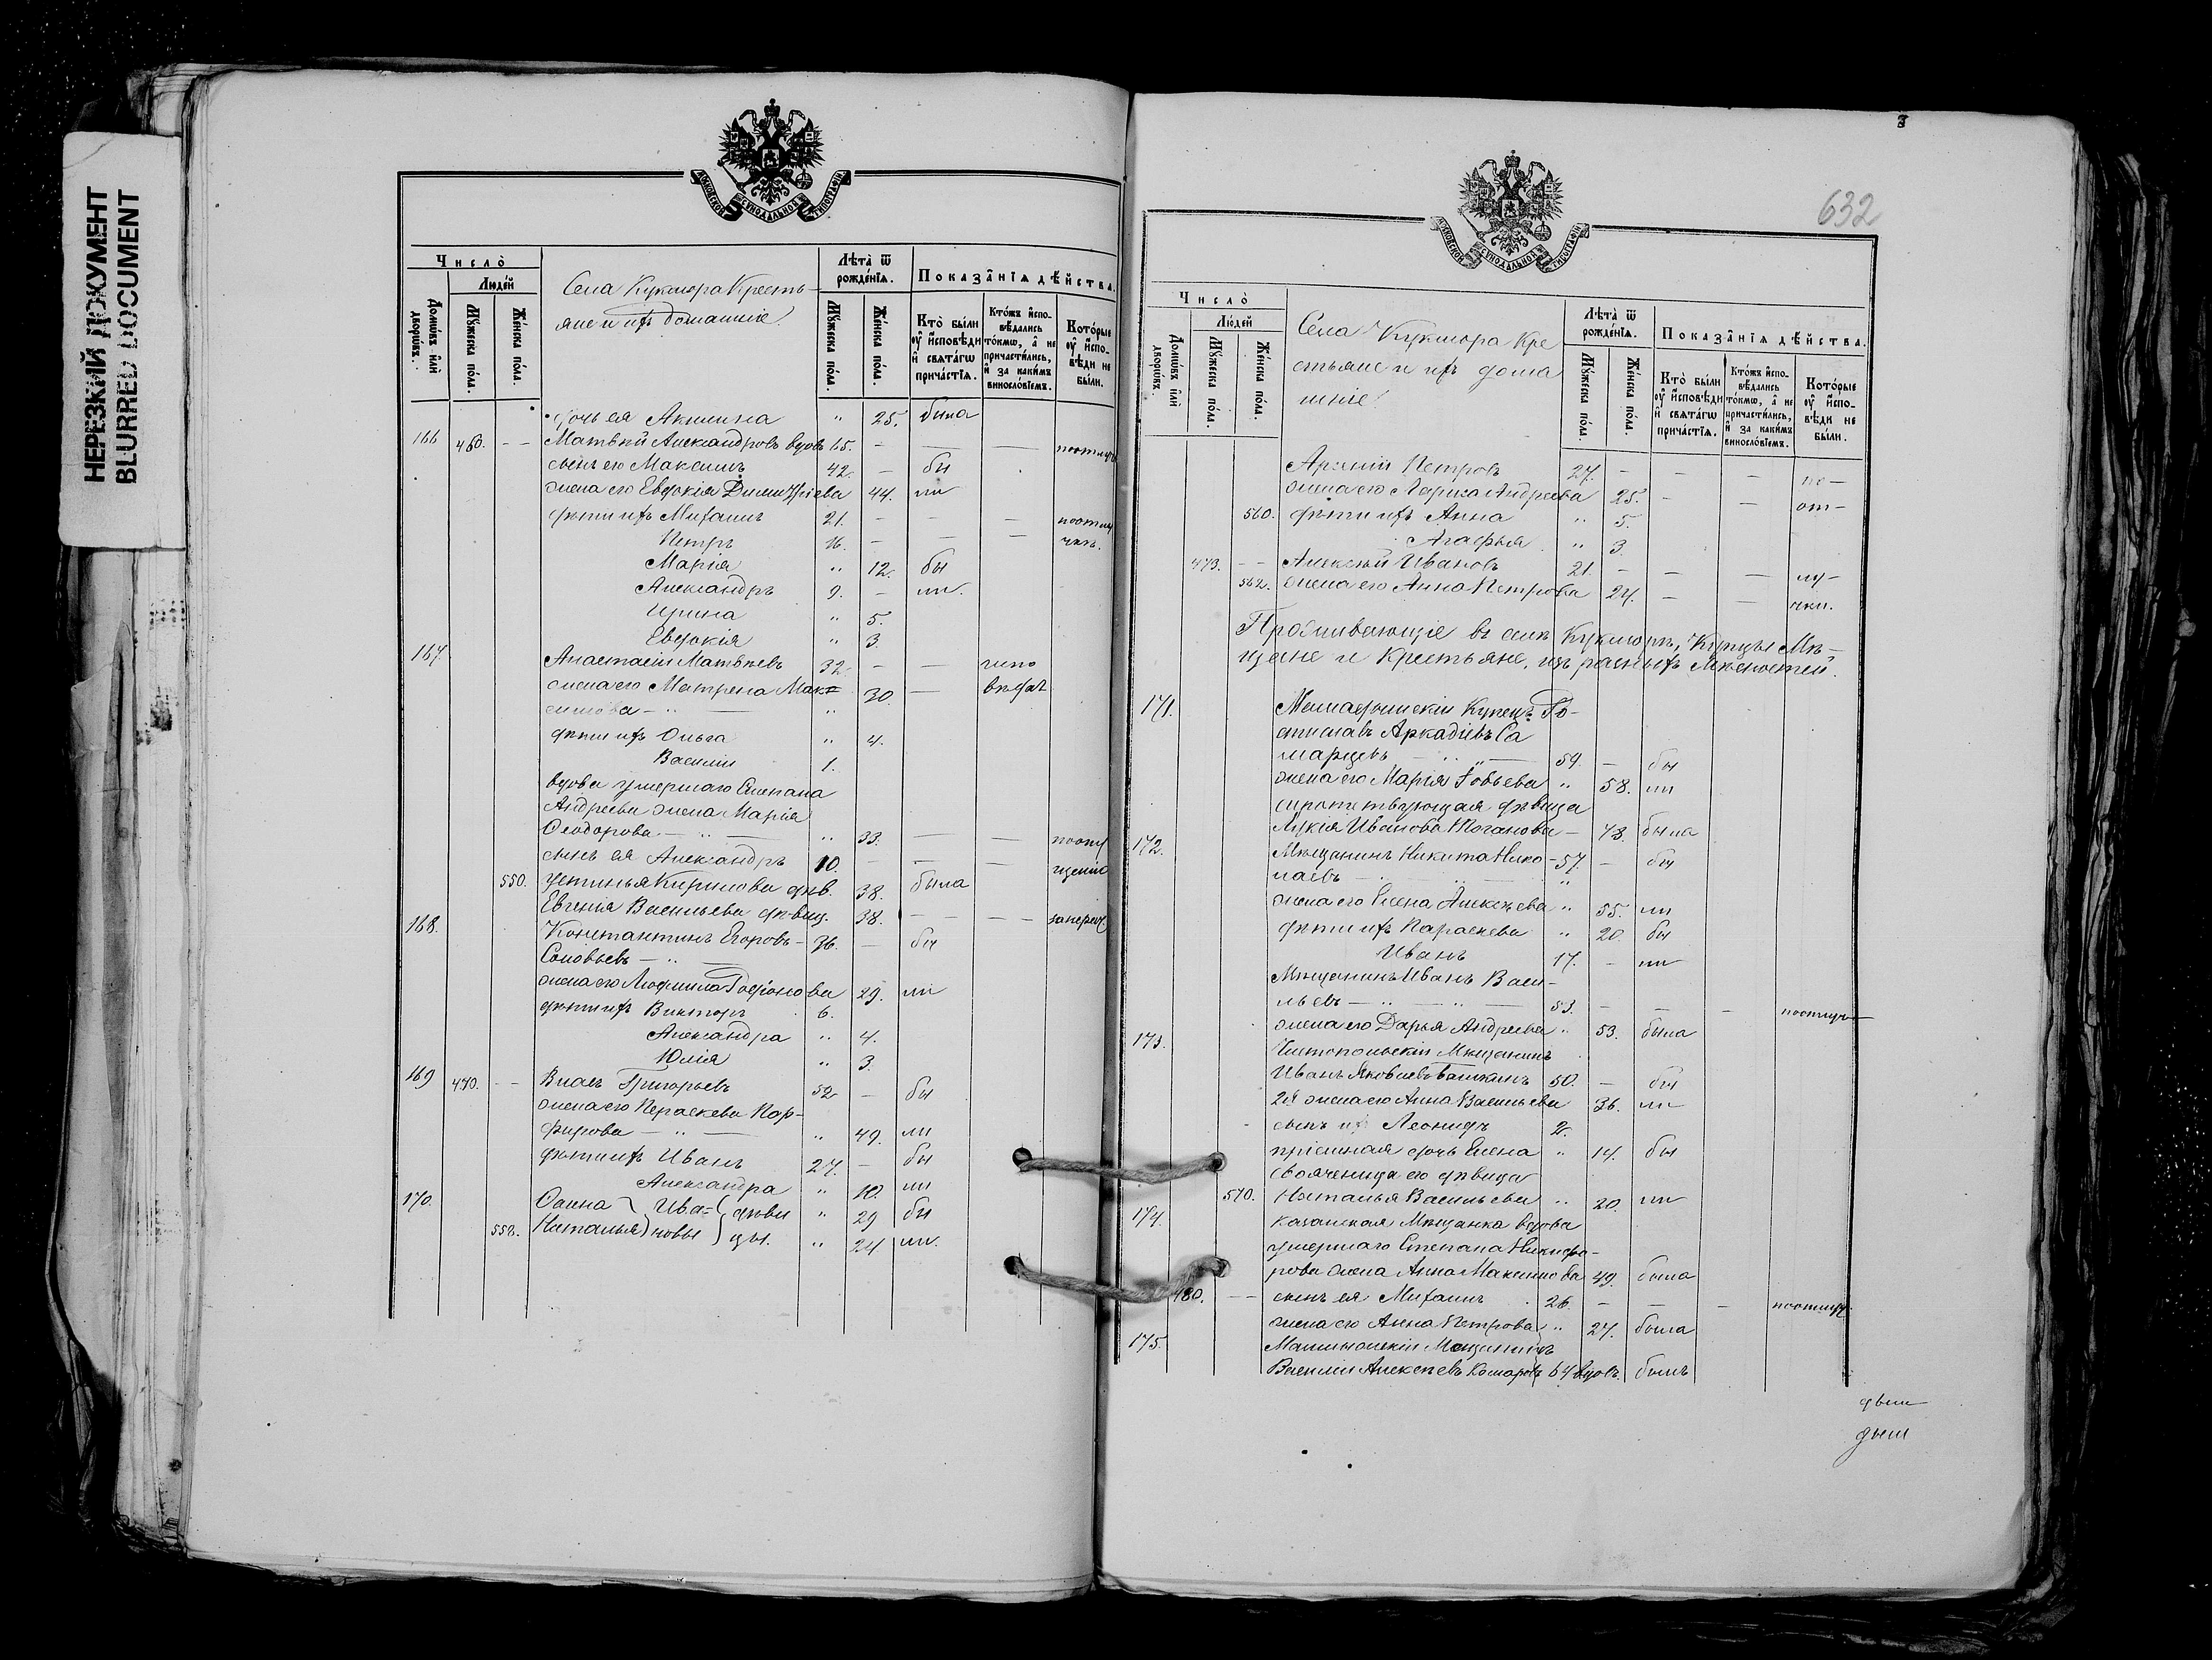 НЕРЕЗКИЙ ДОКУМЕНТ
BLURRED DOCUMENT
МОСКОВСКОЙ СѴНОДАЛЬНОЙ ТИПОГРАФІИ
Число̀
Людей
Домѡвъ или дворѡвъ.
Мꙋжеска пола.
Женска пола.
Села Кукмора Кресть-
яне и ихъ домашніе.
Лѣта ѿ рожденія.
Мꙋжеска пола.
Женска пола.
Показанія дѣйства.
Кто были ᲂу҆ исповѣди и свѧтагѡ причастія.
Ктожъ исповѣдались токмѡ, а не причастились, и за какимъ винословіемъ.
Которые ᲂу҆ исповѣди не были.
дочь ея Акилина " 25. была
166 460. - - Матвѣй Александровъ вдовъ 65. - - - по отлуч
сынъ его Максимъ 42. - бы
жена его Евдокія Димитріева 44. ли
дѣти ихъ Михаилъ 21. - - - по отлу
Петръ 16. - - - чкѣ.
Марія " 12. бы
Александръ 9. - ли.
Ирина " 5.
Евдокія " 3.
167. Анастасій Матвѣевъ 32. - -
жена его Матрена Мак= 30. -
симова - " - "
дѣти ихъ Ольга " 4.
Василій 1.
вдова умершаго Степана
Андреева жена Марія
Ѳеодорова - " - " 33. - - по отлу
сынъ ея Александръ 10. - - -
550. Устинья Кирилова дѣв. 38. была
Евгенія Васильева дѣвиц. 38. - - -
168. Константинъ Егоровъ - 36. - бы
Соловьевъ - " -
жена его Людмила Родіонова 29. ли
дѣти ихъ Викторъ 6.
Александра " 4.
Юлія " 3.
169 470. - - Власъ Григорьевъ 52 - бы
жена его Параскева Пор-
фирова - " - " 49. ли
дѣти ихъ Иванъ 27. - бы
Александра " 10. ли
170. Ѳаина } Ива= { дѣви " 29 бы
558. Наталья } новы } цы. " 24 ли.
632
МОСКОВСКОЙ СѴНОДАЛЬНОЙ ТИПОГРАФІИ
Число̀
Людей
Домѡвъ или дворѡвъ.
Мꙋжеска пола.
Женска пола.
Села Кукмора Кре
стьяне и ихъ дома
шніе.
Лѣта ѿ рожденія.
Мꙋжеска пола.
Женска пола.
Показанія дѣйства.
Кто были ᲂу҆ исповѣди и свѧтагѡ причастія.
Ктожъ исповѣдались токмѡ, а не причастились, и за какимъ винословіемъ.
Которые ᲂу҆ исповѣди не были.
Арсеній Петровъ 27. - - - по -
жена его Лариса Андреева 25. - - от -
560. дѣти ихъ Анна " 5.
Агафья " 3.
473. - - Алексѣй Ивановъ 21. - - - лу -
562. жена его Анна Петрова 24. - - чки.
Проживающіе въ селѣ Кукморѣ, Купцы Мѣ-
щане и крестьяне, изъ разныхъ мѣстностей.
171. Купецъ Ро-
стиславъ Аркадіевъ Са
марцевъ - " - 59. - бы
жена его Марія Іовьева " 58. ли
дѣвица
Лукія Иванова - 73. была
172. Мѣщанинъ Никита Нико - 57. - бы
лаевъ - " - " - "
жена его Елена Алексѣева " 55. ли
дѣти ихъ Параскева " 20. бы
Иванъ 17. - ли
Мѣщанинъ Иванъ Васи-
льевъ - " - " - 53. - - - по отлуч-
жена его Дарья Андреева " 53. была
173. Чистопольскій Мѣщанинъ
Иванъ Яковлевъ Вашкинъ 50. - бы
2я жена его Анна Васильева 36. ли
сынъ их Леонидъ 2.
пріемная дочь Елена " 14. бы
свояченица его дѣвица
570. Наталья Васильева " 20. ли
174. казанская Мѣщанка вдова
умершаго Степана Никифо-
рова жена Анна Максимова 49. была
480. - - сынъ ея Михаилъ 26. - - - по отлуч.
жена его Анна Петрова " 27. была
175. Малмыжскій Мѣщанинъ
Василій Алексѣевъ Комаровъ 64 вдовъ. былъ